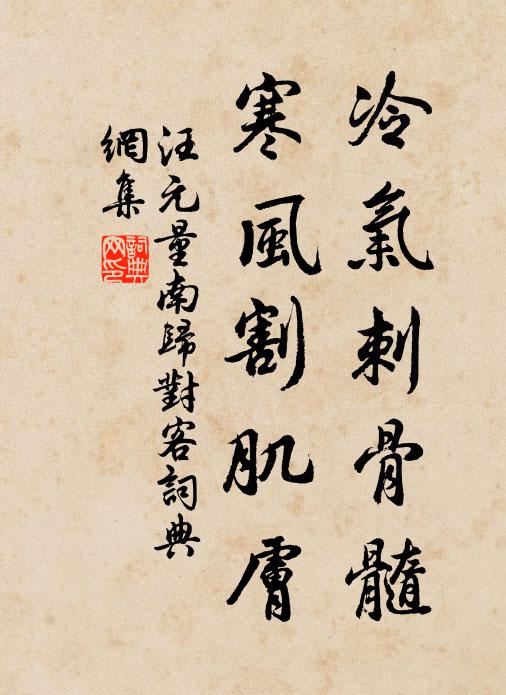 冷氣刺骨髓
寒風割肌膚
汪元量南歸對客詞典
網集
詞典
网印